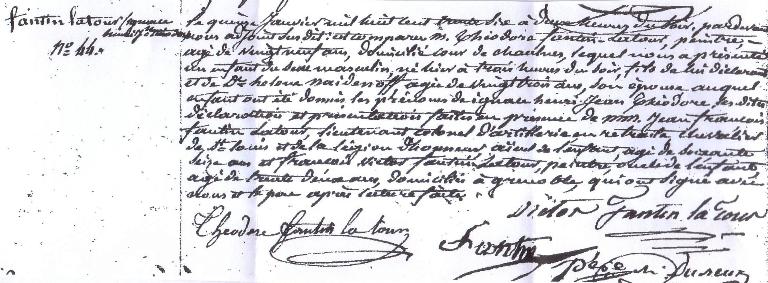 fantin latour, ignace
henri jn théodore
n° 44.
le quinze Janvier mil huit cent trente six à deux heures du soir, par devant
nous adjoint susdit est comparu M. Théodore fantin latour, peintre,
agé de vingt neuf ans, domicilié cour de chaulnes, lequel nous a présenté
un enfant du sexe masculin, né hier à trois heures du soir, fils de lui déclarant
et de De helene naidenoff agée de vingt trois ans, son épouse auquel
enfant ont été donnés les prénoms de ignace henri Jean Théodore, les dites
déclaration et présentation faites en présence de mm. Jean francois
fantin latour, lieutenant colonel d'artillerie en retraite chevalier
de St louis et de la légion d'honneur aieul de l'enfant agé de soixante
seize ans et francois victor fantin latour, peintre, oncle de l'enfant
agé de trente deux ans, domiciliés à grenoble, qui ont signé avec
nous et le père après lecture faite.
Theodore fantin la tour
Victor Fantin la Tour
Fantin